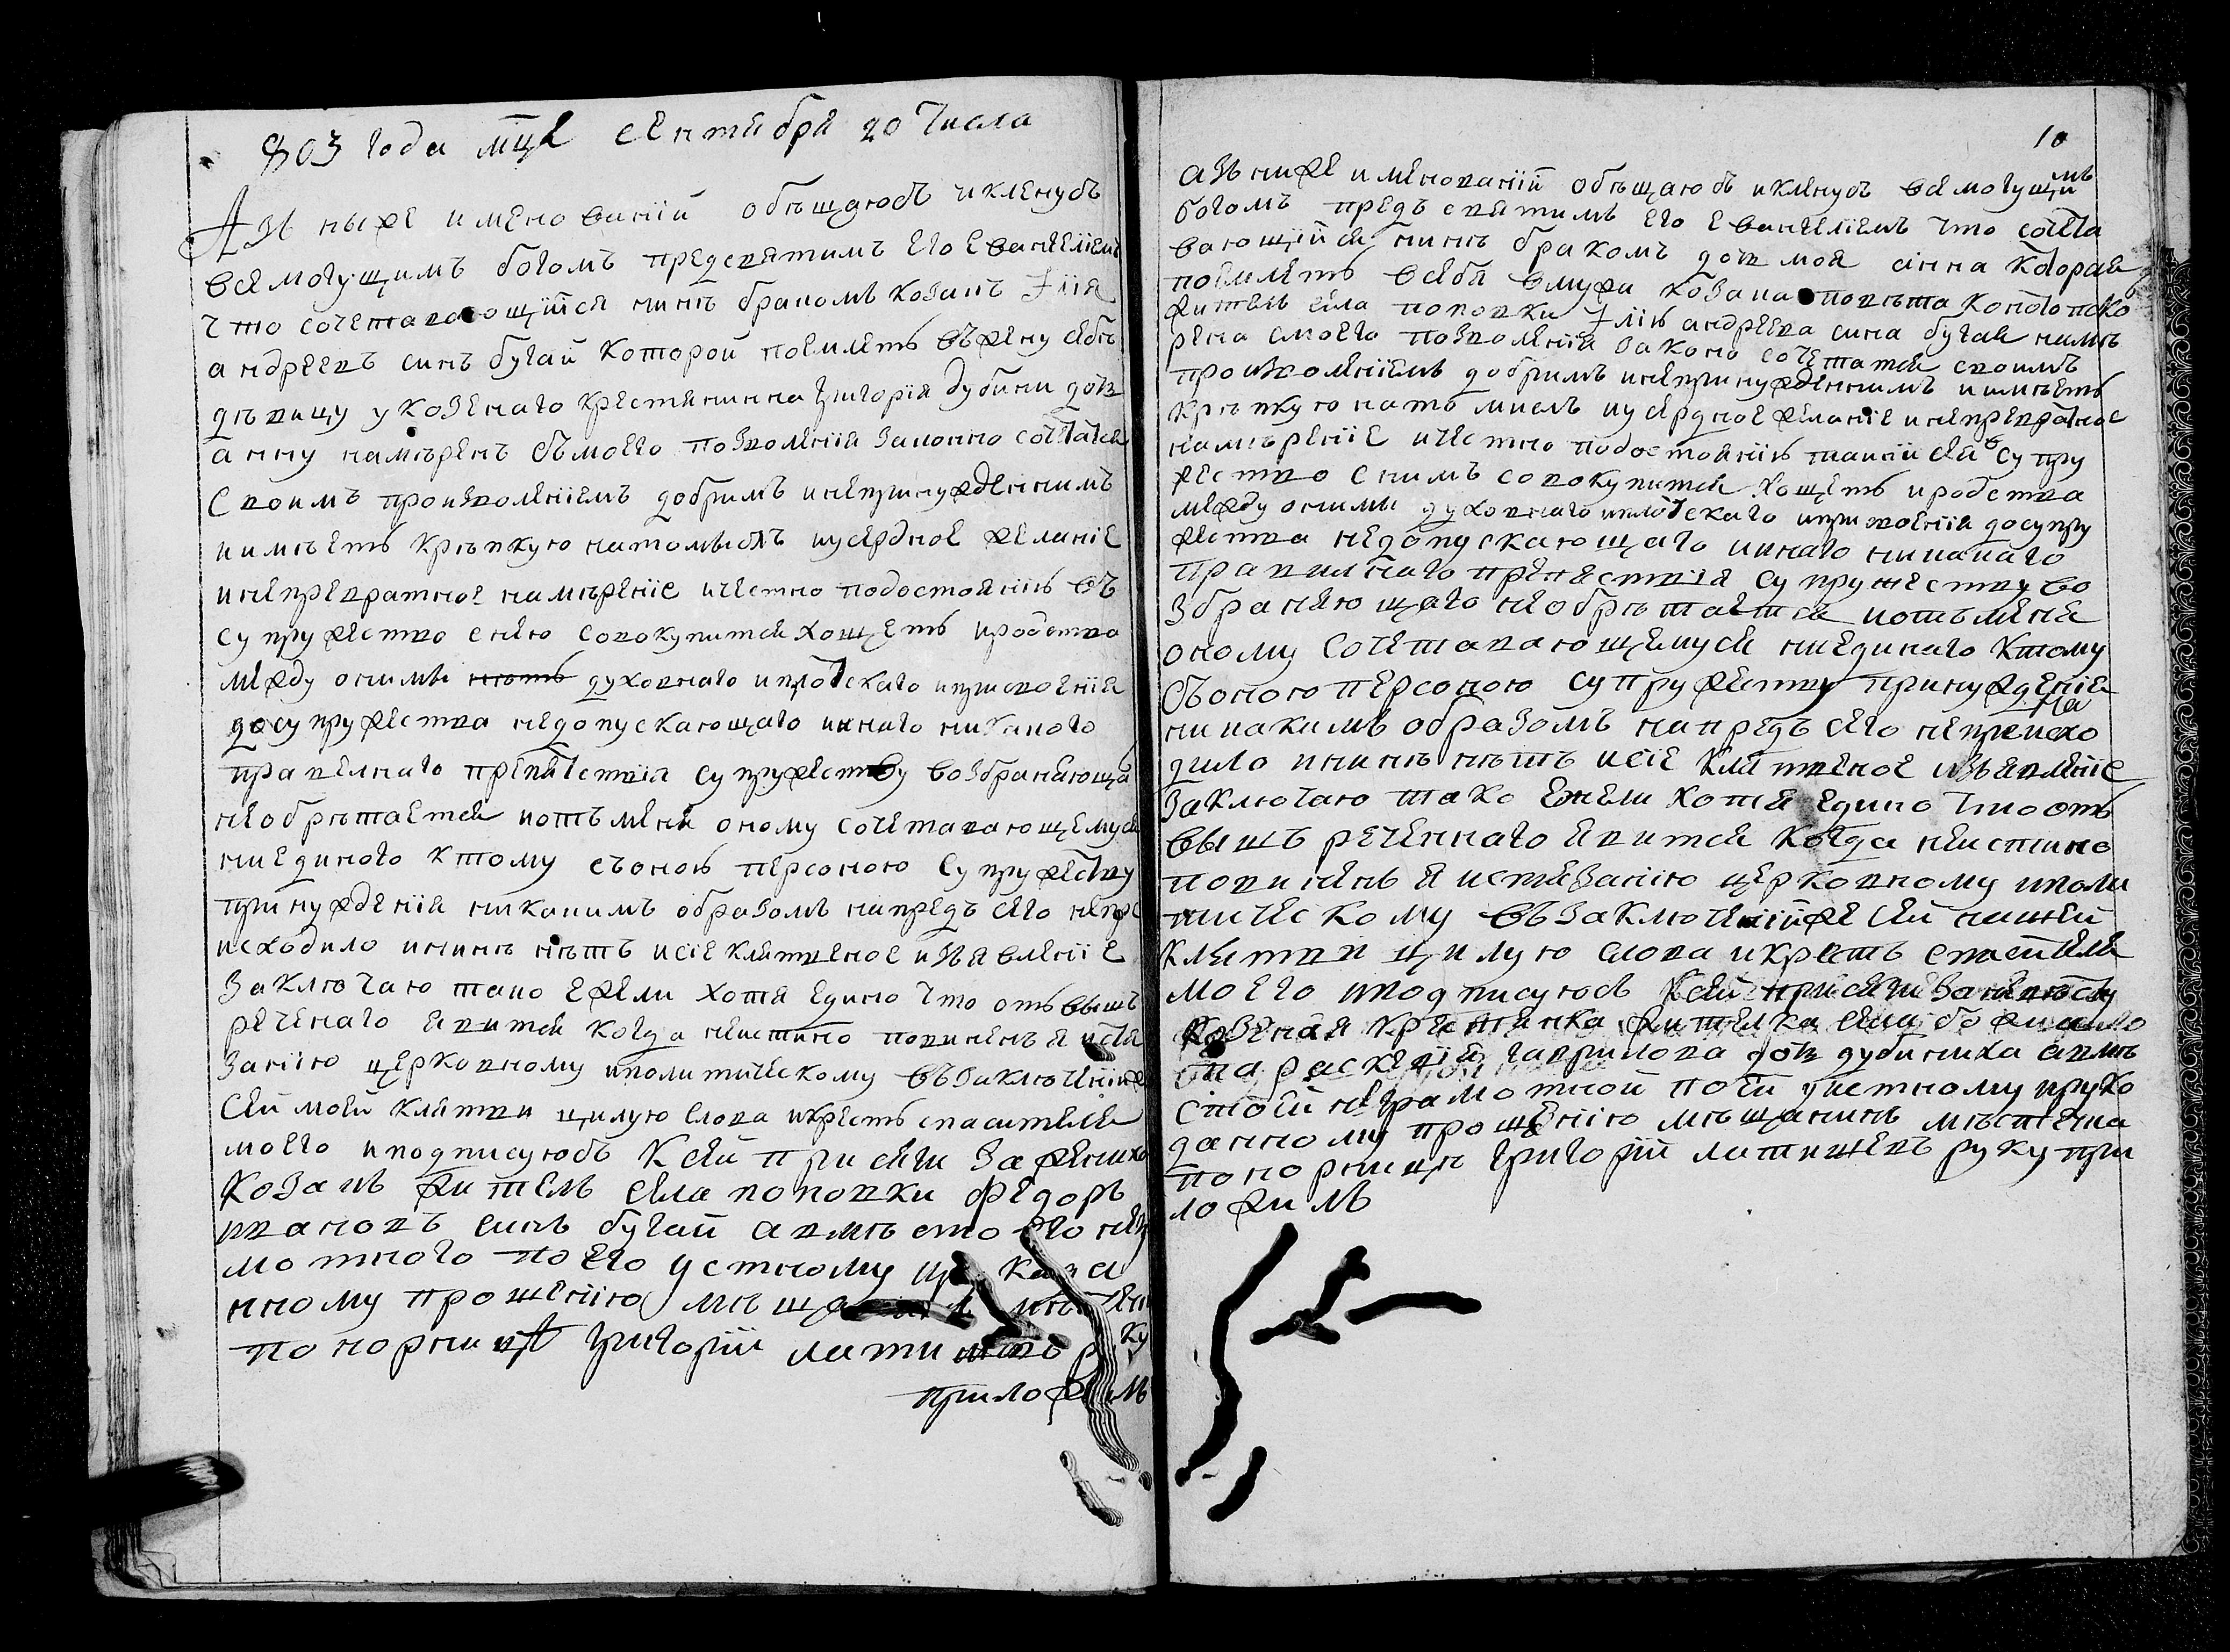 803 года мц͠а сентября 20 числа
Азъ ныже имено ванній обѣщаюсь и кленусь
всемогущимъ богомъ предсвятимъ его евангеліемъ
что сочетавающійся нинѣ бракомъ козакъ Ілія
андреевъ синъ бугай которой поемлетъ въ жену себѣ
дѣвицу у козенаго крестянинна григорія дубини доч
анну намѣренъ съ моего позволенія законно сочетатся
своимъ произволеніемъ добримъ и непринужденнимъ
и имѣетъ крѣпкую на то мысль и усердное желаніе
и непревратное намѣреніе и честно по достоянію въ
супружество с нею совокупится хощетъ и родства
между оними духовнаго и плотскаго и присвоенія
до супружества недопускающаго и инаго никакого
правелнаго препятствія супружеству возбраняюща
необрѣтается и отъ мене оному сочетавающемуся
ниединого к тому съ оною персоною супружеству
принужденія никакимъ образомъ напредъ сего непро
исходило и нинѣ нѣтъ и сіе клятвеное изъявленіе
заключаю тако ежели хотя едино что отъ вышъ
реченаго явится когда неистино повиненъ я истя
занію церковному и политическому въ заключеніи же
сей моей клятви цилую слова и крестъ спасителя
моего и подписуюсь К сей присяги за жениха
козакъ житель села поповки федоръ
ивановъ синъ бугай а вмѣсто его негра
мотного по его устному
нному прошенію
григорій
приложилъ
10
азъ ниже именованій обѣщаюсь и кленусь всемогущимъ
богомъ предъ святимъ его евангеліемъ что сочета
вающійся нинѣ бракомъ доч моя анна которая
поемлетъ всебя в мужа козака
житель села поповки Ілію андреева сина бугая намѣ
рена с моего позволенія законо сочетатся своимъ
произволеніемъ добримъ и непринужденнимъ и имѣетъ
крѣпкую на то мисль и усердное желаніе и непревратное
намѣреніе и честно по достоянію
жество с нимъ совокупится хощетъ и родства
между оними духовнаго и плотскаго и присвоенія до супру
жества недопускающаго и инаго никакаго
правилнаго препяствія супружеству во
збраняющаго необрѣтается и отъ мене
оному сочетавающемуся ниединаго к тому
съ оною персоною супружеству принужденія
никакимъ образомъ напредъ сего непроисхо
дило и нинѣ нѣтъ и сіе клятвеное изъявленіе
заключаю тако ежели хотя едино что отъ
вышъ реченнаго явится когда неистино
повиненъ я истязанію церковному и поли
тическому въ заключеніи же сей
клятви цилую слова и крестъ спасителя
моего и подписуюсь К сей присяги за невѣсту
козеная крестянка жителка села
параскевія гаврилова доч дубиниха а вмѣ
сто ей неграмотной по ей устному и руко
данному прошенію мѣщанинъ мѣстечка
григорій руку при
ложилъ